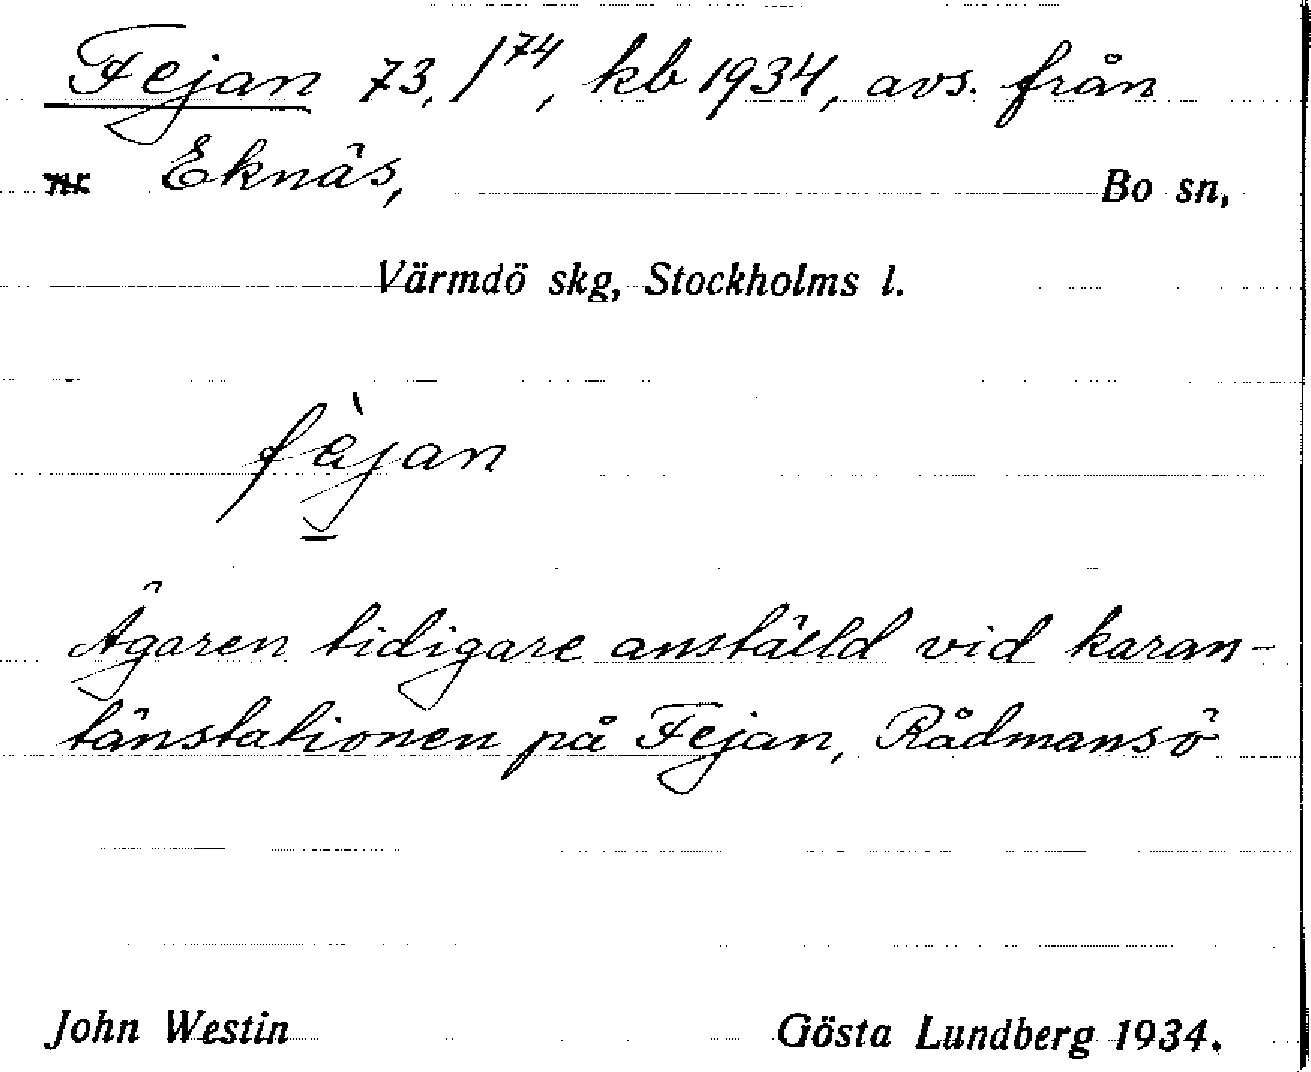 Fejan 73, /74, kb 1934, avs. från
Eknäs, Bo sn,
Värmdö skg, Stockholms l.
fèjan
Ägaren tidigare anställd vid karan-
tänstationen på Fejan, Rådmansö
John Westin Gösta Lundberg 1934.